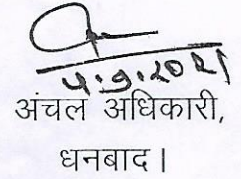 4.9.2021
अंचल अधिकारी,
धनबाद।